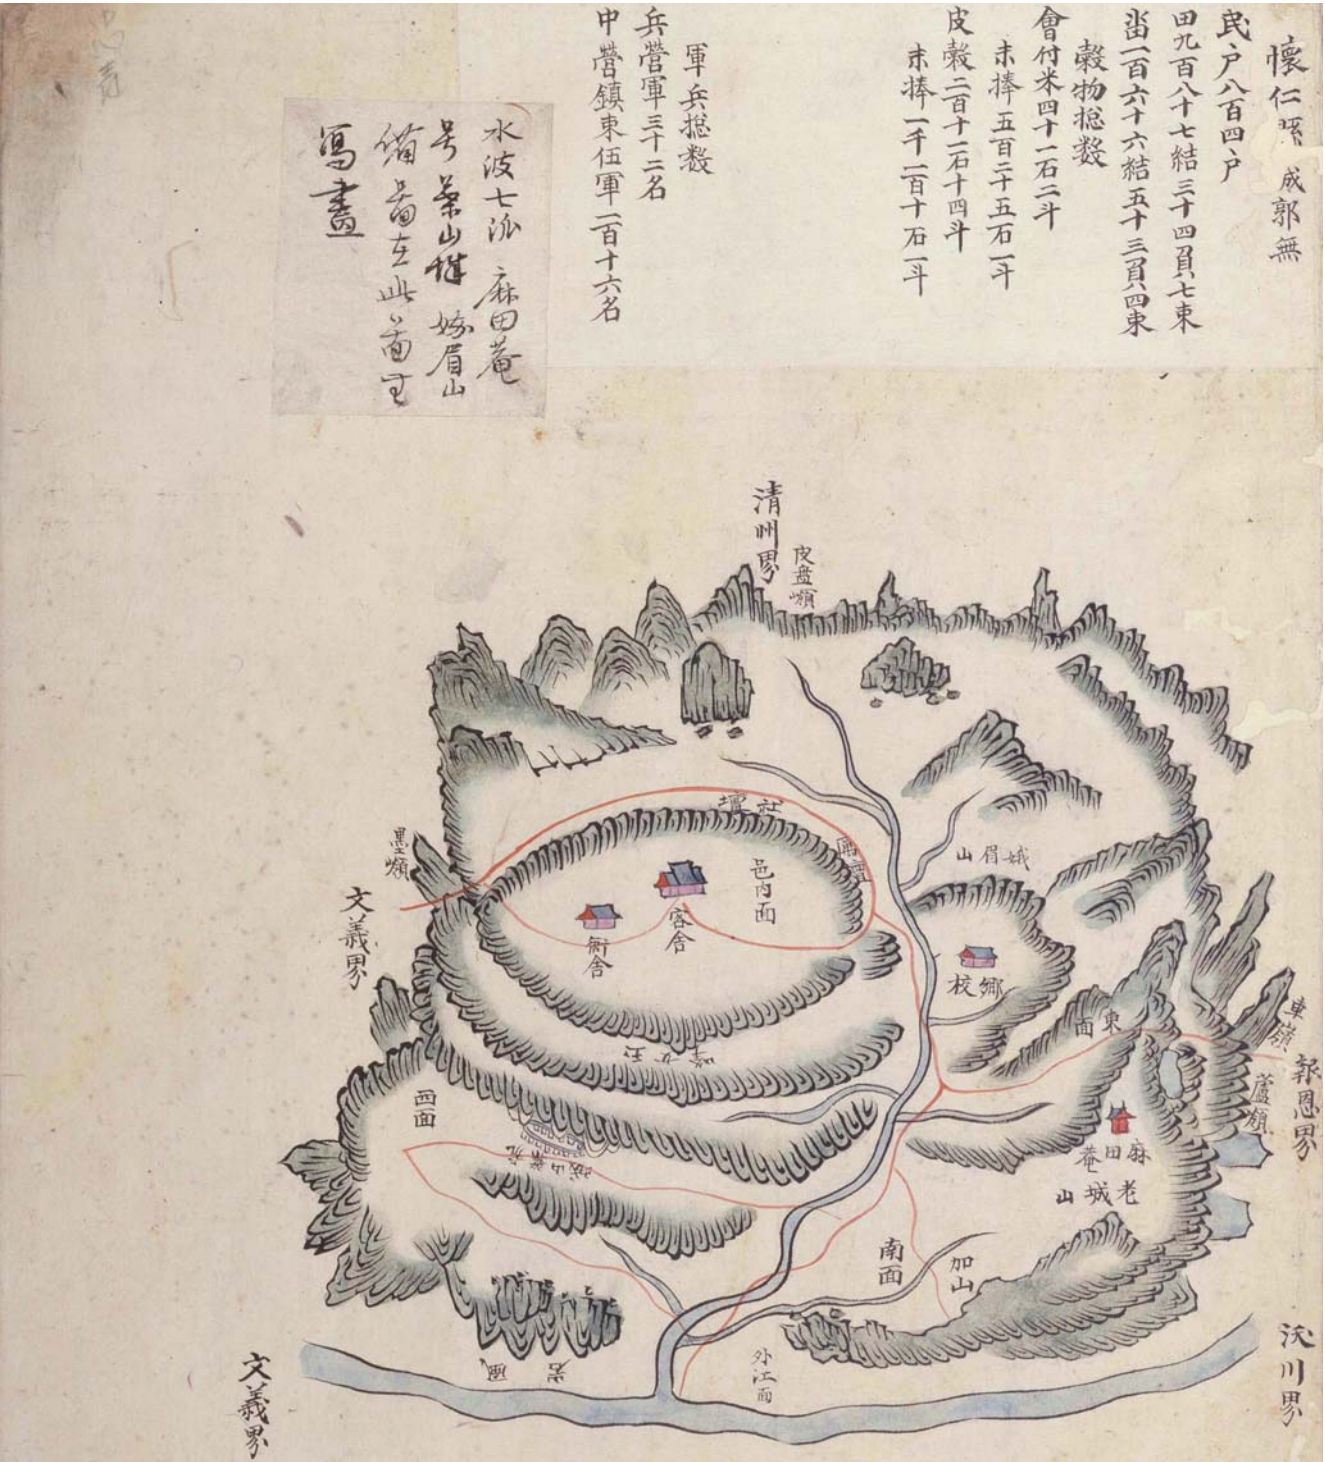 懷仁縣 成郭無
民户八百四户
田九百八十七結三十四負七束
畓一百六十六結五十三負四束
穀物捴数
會付米四十一石二斗
未捧五百二十五石一斗
皮穀二百十一石十四斗
未捧一千二百十石一斗
軍兵捴数
兵營軍三十二名
中營鎮東伍軍二百十六名
水波七派 麻田菴
号 山城 峩眉山
備置在此啚中
寫畫
清州界
皮盘嶺
社壇
厲壇
墨嶺
文義界
邑內面
客舍
衙舍
峩眉山
鄕校
東面
車嶺
報恩界
蘆嶺
玉女峰
西面
山城
麻田菴
老城山
南面
加山
外江面
風岩
沃川界
文義界